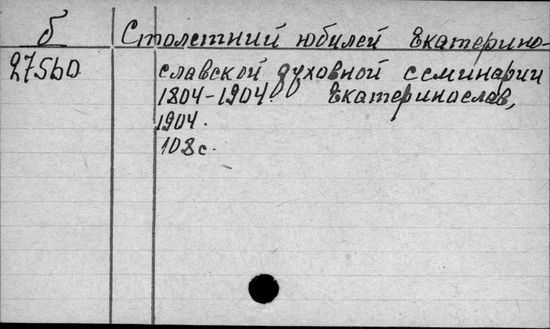 б Столетний юбилей Екатерино-
27560 славской духовной семинарии
1804-1904. Екатеринослав,
1904.
108 с.